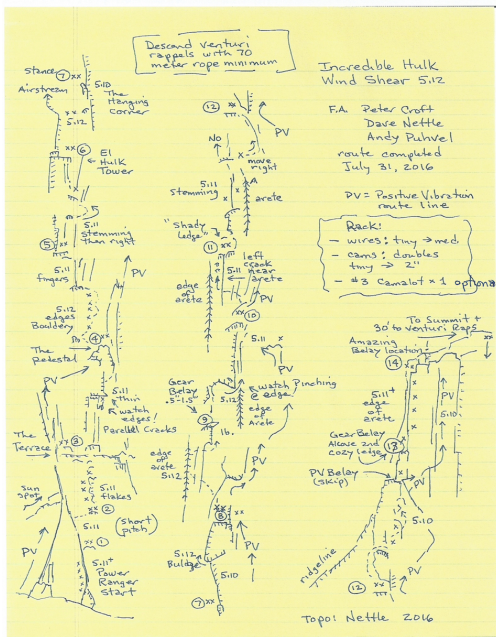 Descend Venturi
rappels with 70
meter rope minimum
Incredible Hulk
Wind Shear 5.12
F.A. Peter Croft
Dave Nettle
Andy Puhvel
route completed
July 31, 2016
PV = Positive Vibration
route line
Rack:
- wires: tiny → med.
- cams: doubles
tiny → 2"
- #3 Camalot x 1 optional
Stance 7 xx
Airstream
5.10
The
Hanging
Corner
xx
5.12
6
El
Hulk
Tower
5.11
stemming
than right
5
5.11
fingers
PV
5.12
edges
Bouldery
4
The
pedestal
PV
5.11
thin
watch edges!
Parellel Cracks
The
Terrace
3 xx
5.11
flakes
sun
spot
xx 2
5.11
(Short
pitch)
PV
xx 1
5.11+
Power
Ranger
Start
12 xx
PV
No
move
right
5.11
stemming
arete
"Shady
Ledge"
11 xx
left
crack
near
arete
5.11
edge
of
arete
PV
xx
10
5.11
Gear
Belay
.5"-1.5"
5.12
watch Pinching
@ edge
edge
of
Arete
9
lb.
PV
edge
of
arete
5.12
PV
xx
8
5.12
Bulge
5.10
7 xx
To Summit +
30' to Venturi Raps
Amazing
Belay location!
14
5.11+
edge
of
arete
PV
5.10
PV
Gear Belay
Alcove 2nd
cozy ledge
13
PV Belay
(skip)
5.10
ridgeline
PV
12 xx
Topo: Nettle 2016